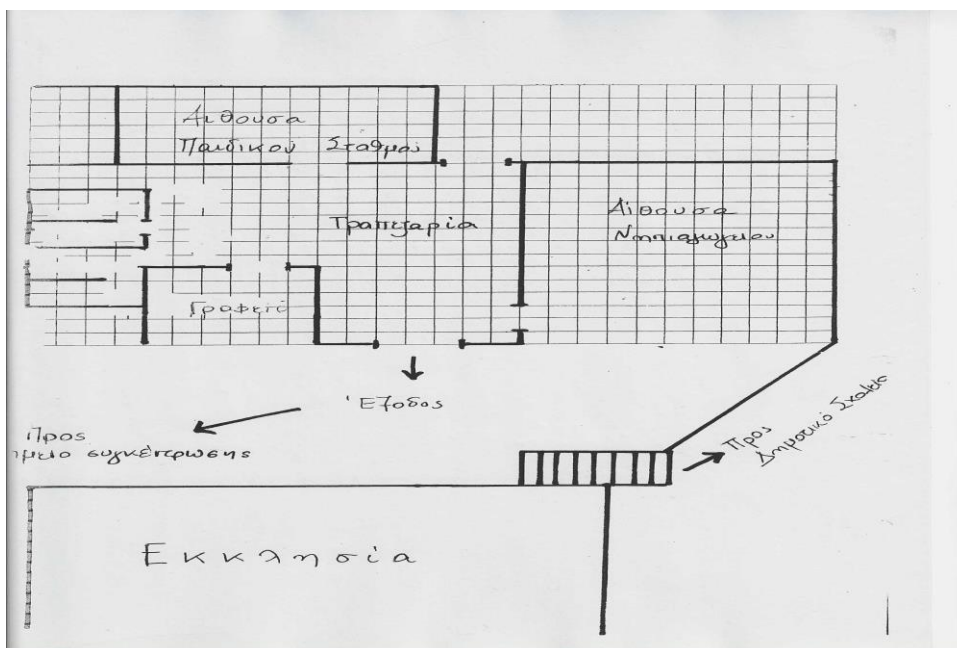 Αίθουσα
Παιδικού Σταθμού
Τραπεζαρία
Αίθουσα
Νηπιαγωγείου
Γραφείο
Έξοδος
Προς
μείο συγκέντρωσης
Προς
Δημοτικό Σχολείο
Εκκλησία